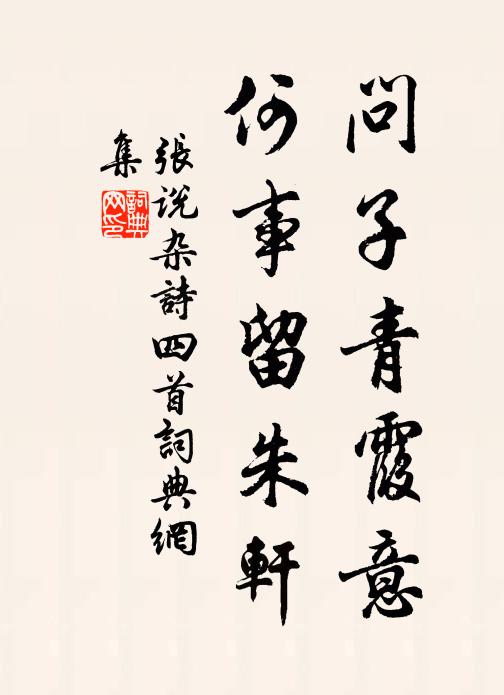 問子青霞意
何事留朱軒
張説杂詩四首詞典網
集
詞典
网印